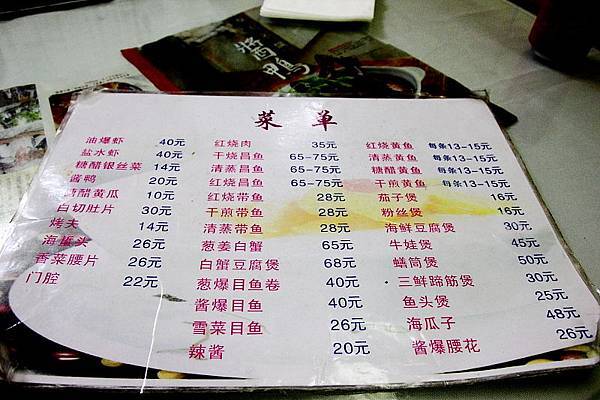 酱鸭
菜单
油爆虾 40元
盐水虾 40元
糖醋银丝菜 14元
酱鸭 20元
糖醋黄瓜 10元
白切肚片 30元
烤夫 14元
海蜇头 26元
香菜腰片 26元
门腔 22元
红烧肉 35元
干烧昌鱼 65-75元
清蒸昌鱼 65-75元
红烧昌鱼 65-75元
红烧带鱼 28元
干煎带鱼 28元
清蒸带鱼 28元
葱姜白蟹 65元
白蟹豆腐煲 68元
葱爆目鱼卷 40元
酱爆目鱼 40元
雪菜目鱼 26元
辣酱 20元
红烧黄鱼 每条13-15元
清蒸黄鱼 每条13-15元
糖醋黄鱼 每条13-15元
干煎黄鱼 每条13-15元
茄子煲 16元
粉丝煲 16元
海鲜豆腐煲 30元
牛娃煲 45元
蟮筒煲 50元
三鲜蹄筋煲 30元
鱼头煲 25元
海瓜子 48元
酱爆腰花 26元